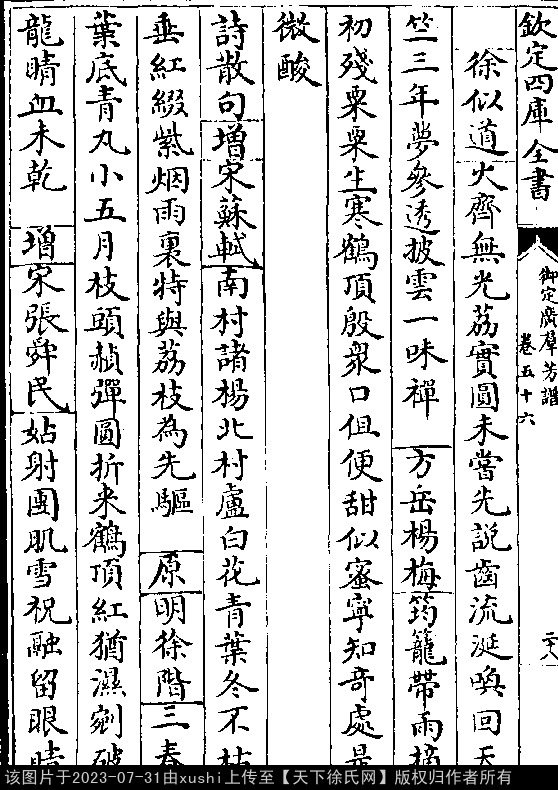 欽定四庫全書
御定廣羣芳譜
卷五十六
二十八
徐似道火齊無光荔實圓未嘗先説齒流涎喚回天
竺三年夢參透披雲一味禪 方岳楊梅筠籠帶雨摘
初殘粟粟生寒鶴頂殷衆口但便甜似蜜寧知奇處是
微酸
詩散句增宋蘇軾南村諸楊北村盧白花青葉冬不枯
垂紅綴紫烟雨裏特與荔枝為先驅 原明徐階三春
葉底青丸小五月枝頭赬彈圓折來鶴頂紅猶濕剜破
龍睛血未乾 增宋張舜民姑射團肌雪祝融留眼睛
该图片于2023-07-31由xushi上传至【天下徐氏网】版权归作者所有